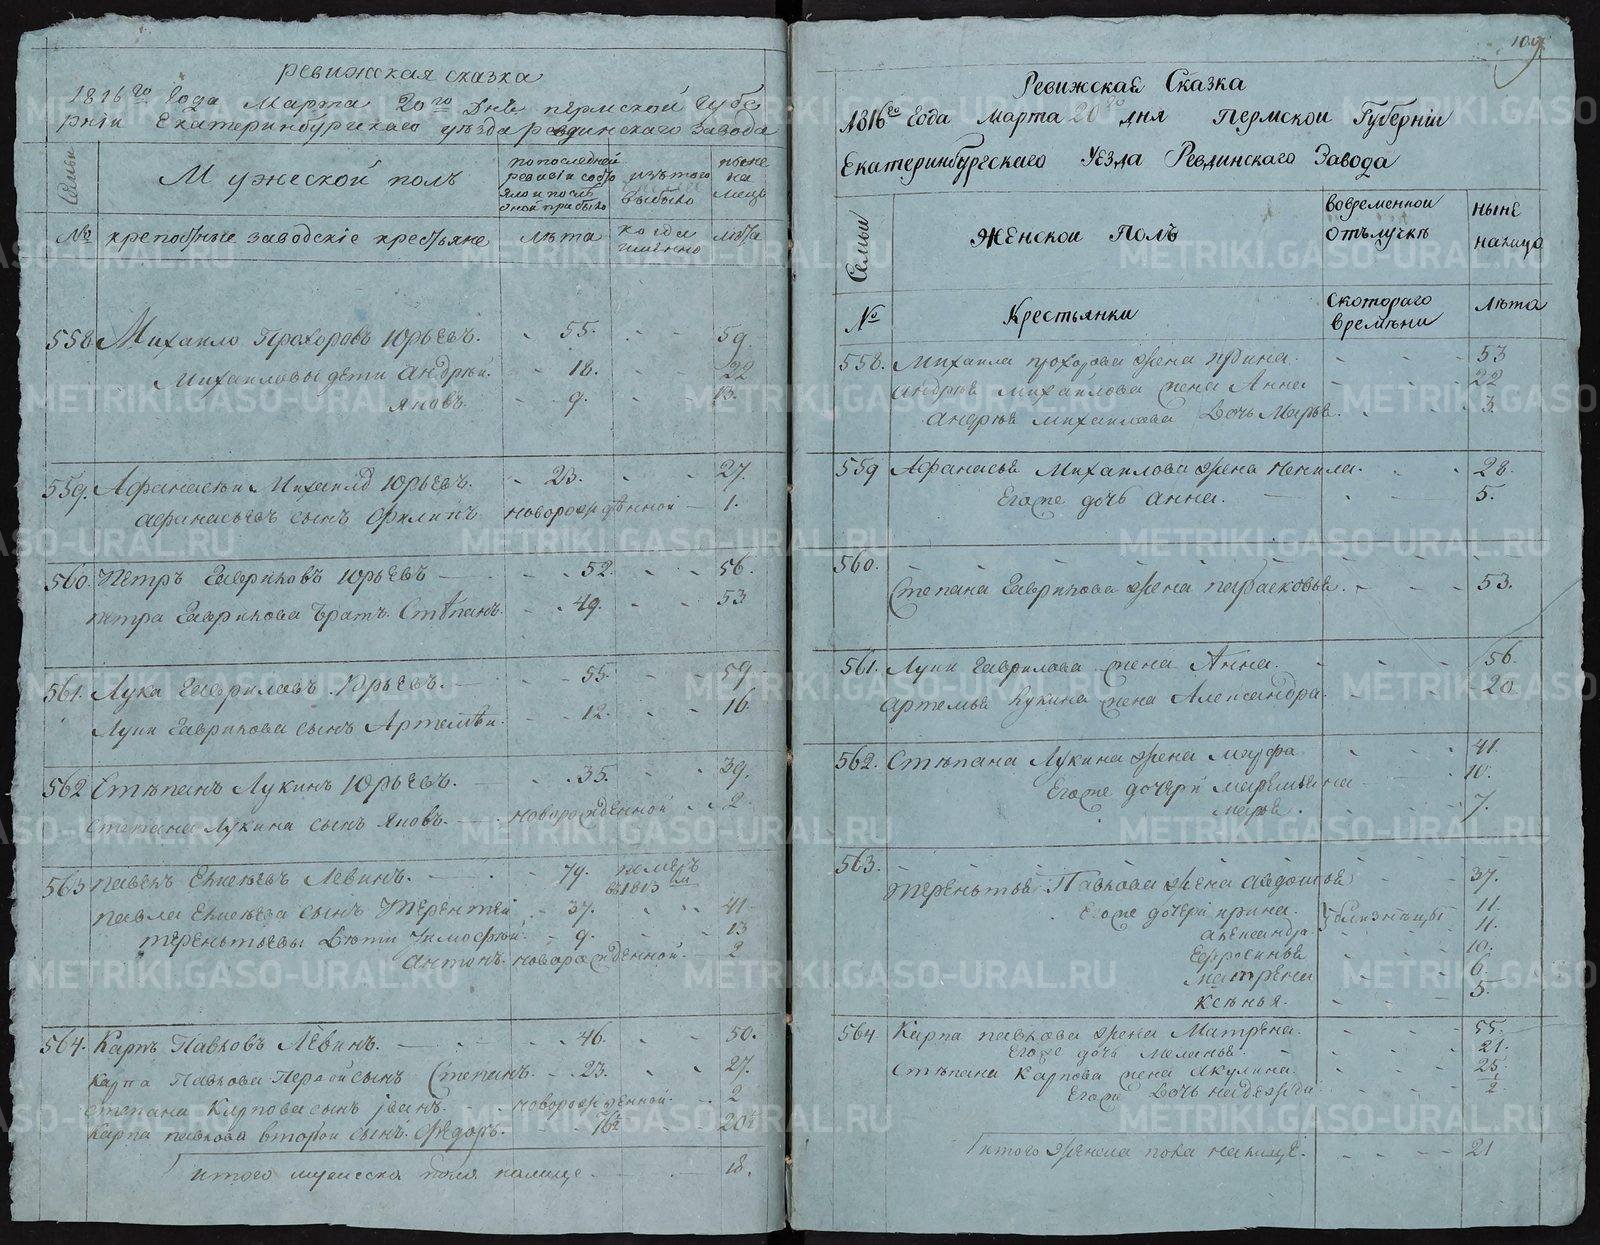 ревижская сказка
1816го Года Марта 20го Дня пермской губе
рнiи Екатеринбургскаго уезда ревдинскаго завода
Семьи
Мужеской полъ
по последней ревизiи состояло и после оной прибыло
изъ того выбыло
ныне на лицо
№
крепостные заводскiе крестьяне
лѣта
когда имянно
лѣта
558. Михаило Прохоровъ Юрьевъ. 55. 59.
Михаиловы дети андрѣй. 18. 22
яковъ. 9. 13.
559. Афанасеи Михаилов Юрьевъ. 23. 27.
афанасьевъ сынъ Филипъ новорожденной 1.
560. Петръ Гавриловъ Юрьевъ 52. 56.
петра Гаврилова братъ Степанъ. 49. 53
561. Лука Гавриловъ Юрьевъ. 55. 59.
Луки Гаврилова сынъ Артемѣи. 12. 16.
562 Степанъ Лукинъ Юрьевъ. 35. 39.
степана Лукина сынъ Яковъ. новорожденной 2
563 павелъ Елисеевъ Левинъ. 79. померъ в 1813м
павла Елисеева сынъ Терентей 37. 41
терентьевы дѣти Тимофей. 9. 13
антонъ. новорожденной. 2
564. Карпъ Павловъ Левинъ. 46. 50.
Карпа Павлова первой сынъ Степанъ. 23. 27.
степана Карпова сынъ iванъ. новорожденной. 2
Карпа павлова второй сынъ Федоръ. 16½ 20½
итого мужеска пола налицо 18.
109
Ревижская Сказка
1816го Года Марта 20го дня Пермской Губернiи
Екатеринбургскаго Уезда Ревдинскаго Завода
Семьи
Женской Полъ
вовременной отълучкѣ
ныне налицо
№
Крестьянки
скотораго времѣни
лѣта
558. Михаила прохорова жена ирина. 53
андрѣя михаилова жена Анна 22
андрѣя михаилова дочь Марья. 3.
559 Афанасья Михаилова жена ненила. 28.
Егоже дочь анна. 5.
560.
Степана Гаврилова жена парасковья. 53.
561. Луки Гаврилова жена Анна. 56.
артемья лукина жена Александра. 20
562. Степана Лукина жена марфа 41.
Егоже дочери маремьяна 10.
марья. 7.
563.
терентья Павлова жена авдотья 37.
Егоже дочери ирина. близницы 11.
александра. 11.
Ефросинья 10.
матрена 6.
Ксенья. 5.
564. Карпа павлова жена Матрена. 55.
Егоже дочь меланья. 21.
Степана Карпова жена Акулина. 25.
Егоже дочь надежда ½
итого женска пола налице. 21
METRIKI.GASO-URAL.RU